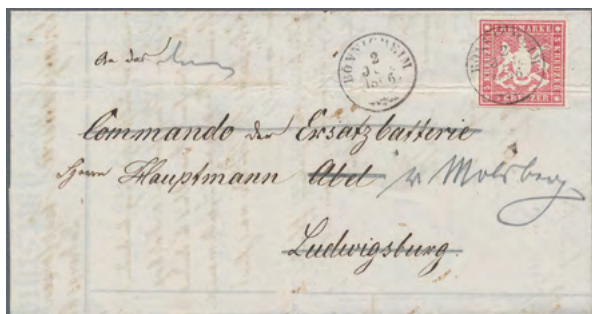 An das
BÖNNIGHEIM
2
Commando der Ersatzbatterie
Herrn Hauptmann Abel v Molsberg
Ludwigsburg.